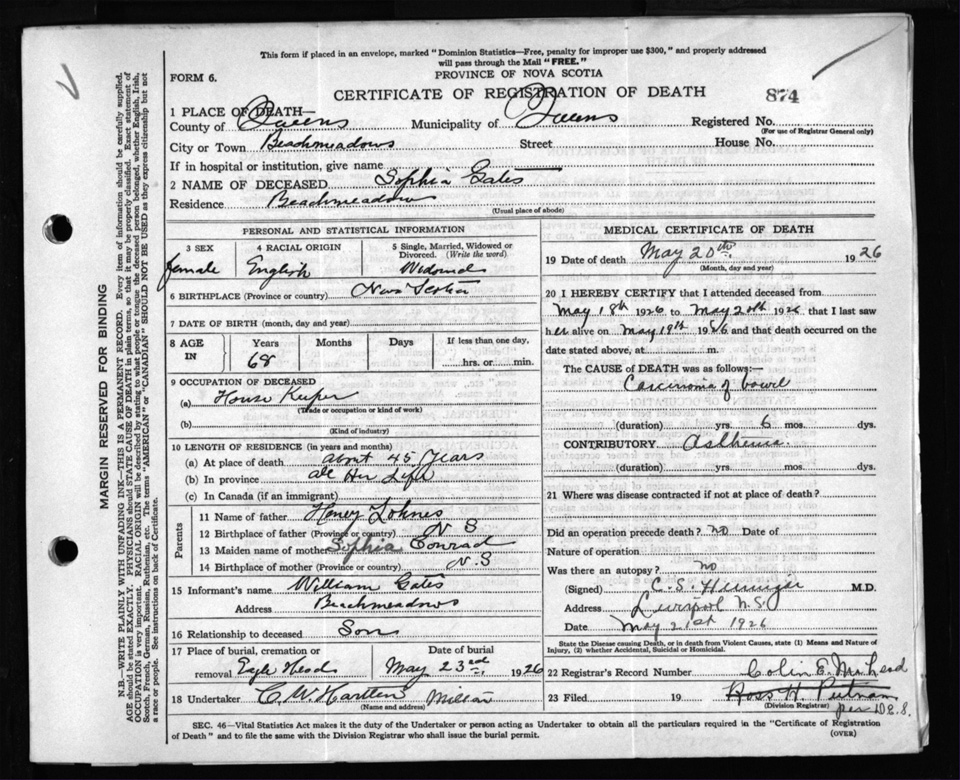 This form if placed in an envelope, marked "Dominion Statistics—Free, penalty for improper use $300," and properly addressed
will pass through the Mail "FREE."
PROVINCE OF NOVA SCOTIA
FORM 6.
CERTIFICATE OF REGISTRATION OF DEATH
874
1 PLACE OF DEATH
County of Queens Municipality of Queens Registered No.
(For use of Registrar General only)
City or Town Beachmeadows Street House No.
If in hospital or institution, give name
2 NAME OF DECEASED Sophia Gates
Residence Beachmeadows
(Usual place of abode)
MARGIN RESERVED FOR BINDING
N.B.—WRITE PLAINLY WITH UNFADING INK—THIS IS A PERMANENT RECORD. Every item of information should be carefully supplied.
AGE should be stated EXACTLY. PHYSICIANS should STATE CAUSE OF DEATH in plain terms, so that it may be properly classified. Exact statement of
OCCUPATION is very important. RACIAL ORIGIN will be described by stating to what people or tongue the deceased person belonged, whether English, Irish,
Scotch, French, German, Russian, Ruthenian, etc. The terms "AMERICAN" or "CANADIAN" SHOULD NOT BE USED as they express citizenship but not
a race or people. See instructions on back of Certificate.
PERSONAL AND STATISTICAL INFORMATION
3 SEX 4 RACIAL ORIGIN 5 Single, Married, Widowed or
Divorced. (Write the word)
female English Widowed
6 BIRTHPLACE (Province or country) Nova Scotia
7 DATE OF BIRTH (month, day and year)
8 AGE IN Years Months Days If less than one day,
68 hrs. or min.
9 OCCUPATION OF DECEASED
(a) House Keeper
(Trade or occupation or kind of work)
(b)
(Kind of industry)
10 LENGTH OF RESIDENCE (in years and months)
(a) At place of death about 45 Years
(b) In province all Her Life
(c) In Canada (if an immigrant)
Parents
11 Name of father Henry Lohnes
12 Birthplace of father (Province or country) N S
13 Maiden name of mother Sophia Conrad
14 Birthplace of mother (Province or country) N.S
15 Informant's name William Gates
Address Beachmeadows
16 Relationship to deceased Son
17 Place of burial, cremation or Date of burial
removal Head May 23rd 1926
18 Undertaker C. W. Milton
(Name and address)
MEDICAL CERTIFICATE OF DEATH
19 Date of death May 20th 1926
(Month, day and year)
20 I HEREBY CERTIFY that I attended deceased from
May 18th 1926 to May 20th 1926 that I last saw
her alive on May 19th 1926 and that death occurred on the
date stated above, at m.
The CAUSE of DEATH was as follows:—
Carcinoma of bowel
(duration) yrs. 6 mos. dys.
CONTRIBUTORY Asthenia.
(duration) yrs. mos. dys.
21 Where was disease contracted if not at place of death?
Did an operation precede death? no Date of
Nature of operation
Was there an autopsy? no
(Signed) C. S. M.D.
Address Liverpool N.S.
Date May 21st 1926
State the Disease causing Death, or in death from Violent Causes, state (1) Means and Nature of
Injury, (2) whether Accidental, Suicidal or Homicidal.
22 Registrar's Record Number Colin E.
23 Filed 19 Ross H. Putnam
(Division Registrar)
per D.E.S.
SEC. 46—Vital Statistics Act makes it the duty of the Undertaker or person acting as Undertaker to obtain all the particulars required in the "Certificate of Registration
of Death" and to file the same with the Division Registrar who shall issue the burial permit.
(OVER)